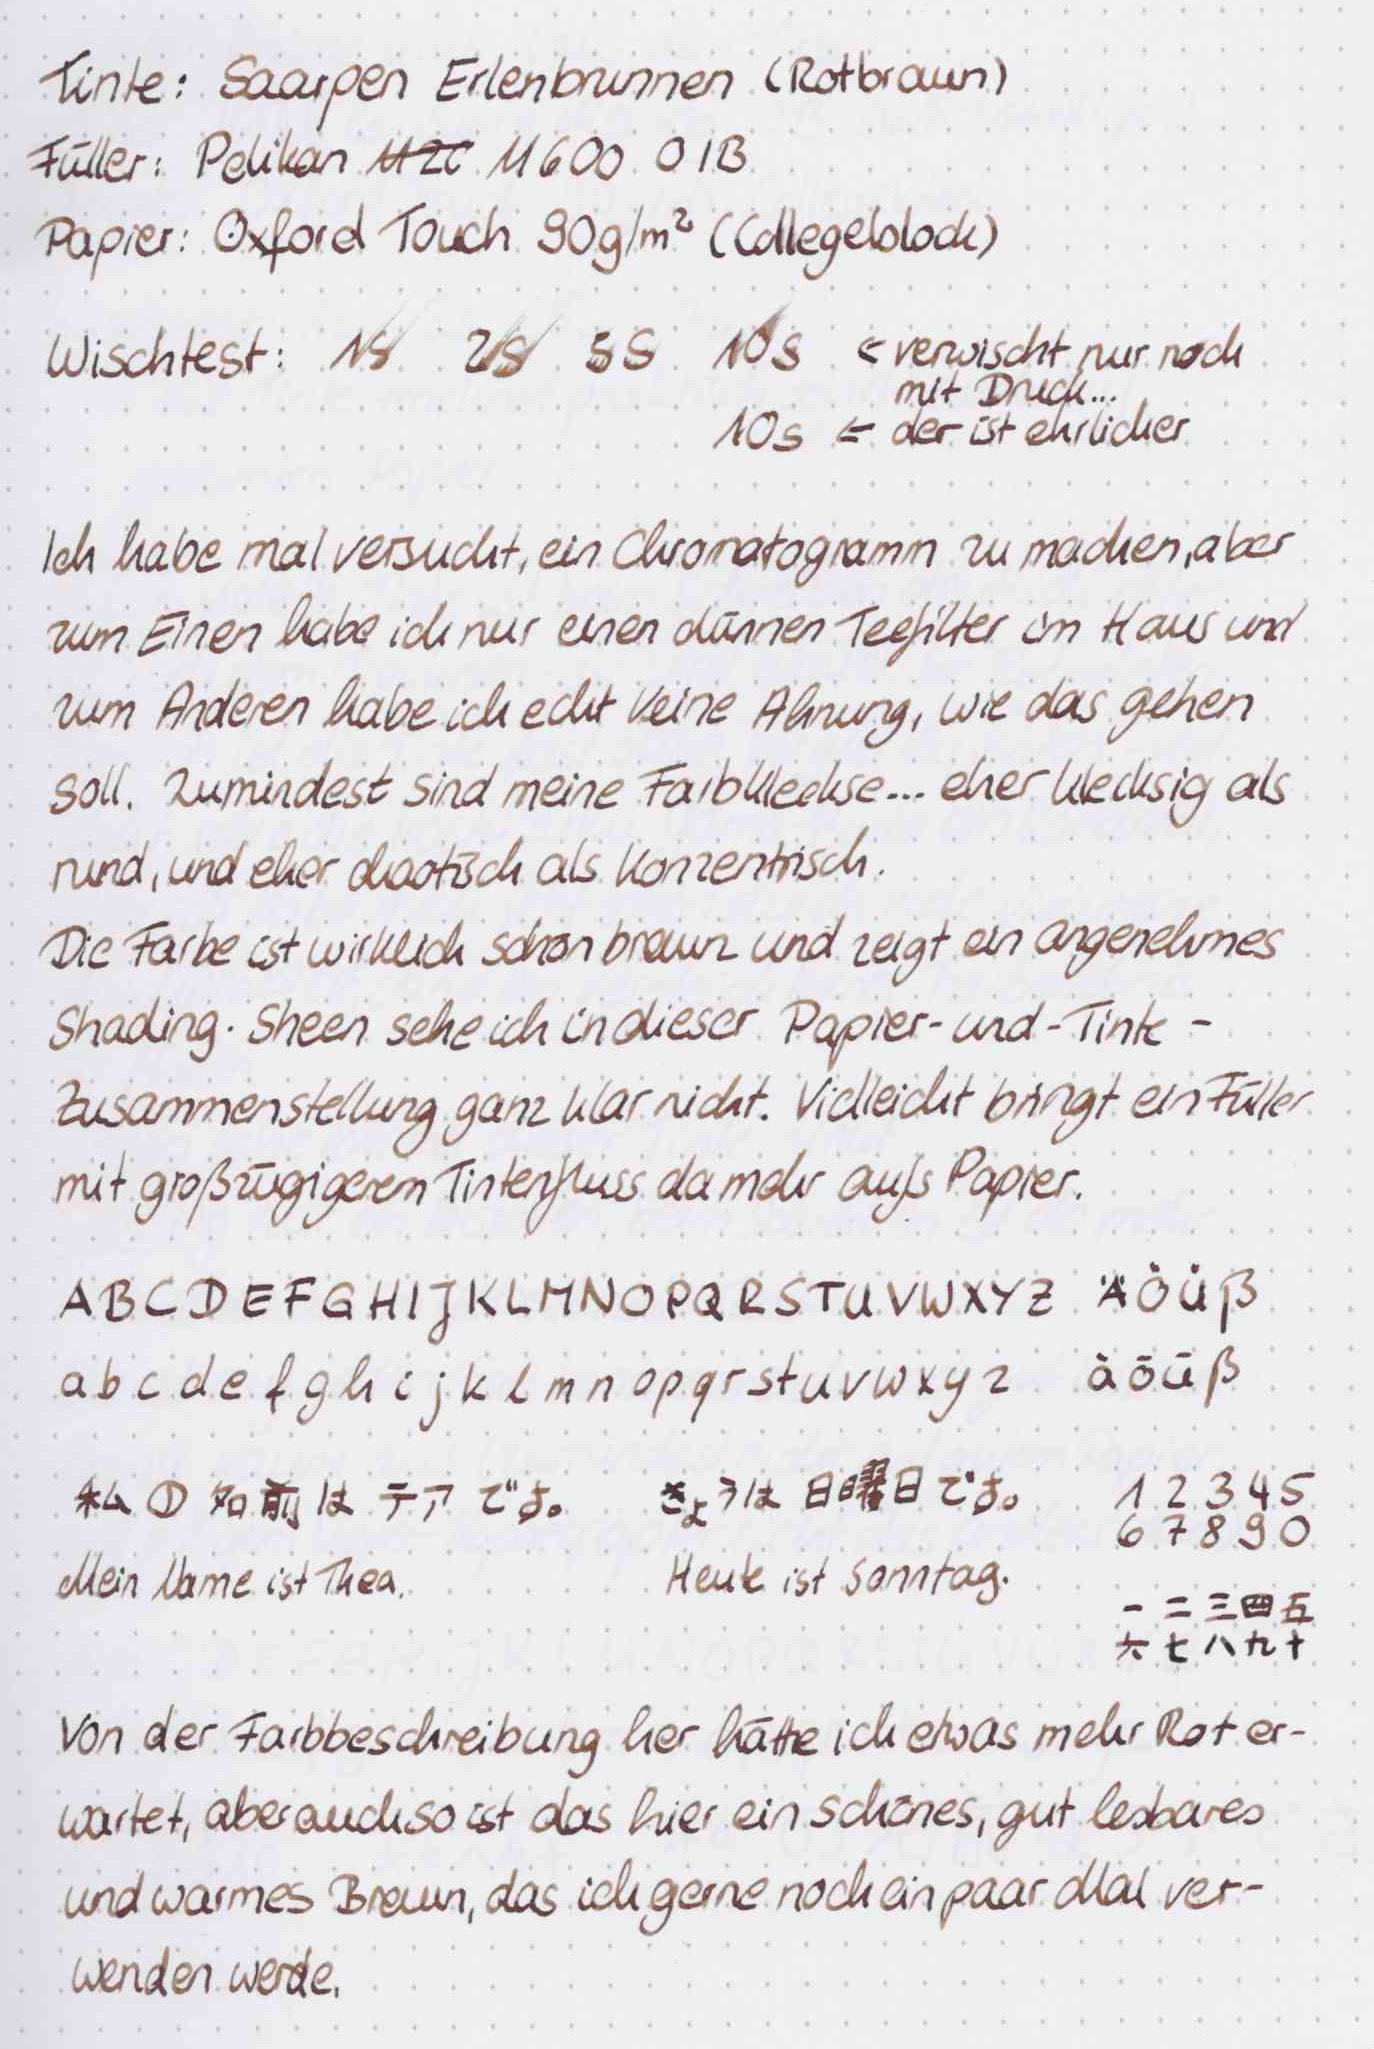 Tinte: Saarpen Erlenbrunnen (Rotbraun)
Füller: Pelikan M20 M600 OIB
Papier: Oxford Touch 90g/m² (Collegeblock)
Wischtest: 1s 2s 5s 10s < verwischt nur noch
mit Druck...
10s ← der ist ehrlicher
Ich habe mal versucht, ein Chromatogramm zu machen, aber
zum Einen habe ich nur einen dünnen Teefilter im Haus und
zum Anderen habe ich echt keine Ahnung, wie das gehen
soll. Zumindest sind meine Farbkleckse... eher klecksig als
rund, und eher chaotisch als konzentrisch.
Die Farbe ist wirklich schön braun und zeigt ein angenehmes
Shading. Sheen sehe ich in dieser Papier-und-Tinte-
Zusammenstellung ganz klar nicht. Vielleicht bringt ein Füller
mit großzügigerem Tintenfluss da mehr aufs Papier.
A B C D E F G H I J K L M N O P Q R S T U V W X Y Z Ä Ö Ü ß
a b c d e f g h i j k l m n o p q r s t u v w x y z ä ö ü ß
私の名前はテアです。 きょうは日曜日です。 1 2 3 4 5
6 7 8 9 0
Mein Name ist Thea. Heute ist Sonntag.
一 二 三 四 五
六 七 八 九 十
Von der Farbbeschreibung her hätte ich etwas mehr Rot er-
wartet, aber auch so ist das hier ein schönes, gut lesbares
und warmes Braun, das ich gerne noch ein paar Mal ver-
wenden werde.